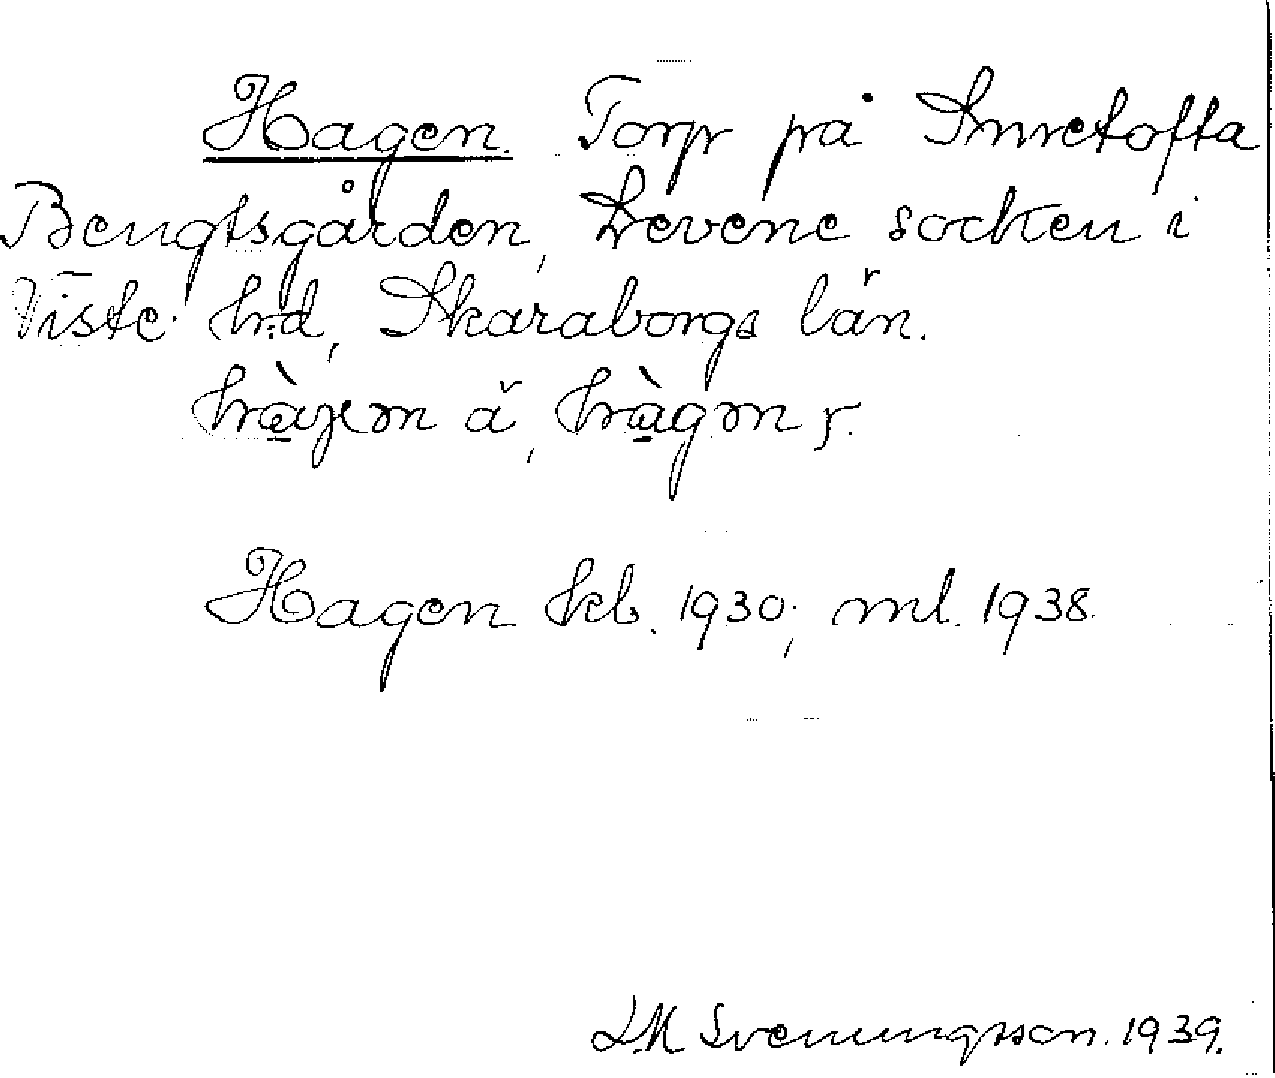 Hagen. Torp på Smretofta
Bengtsgården, Levene socken i
Viste hd, Skaraborgs län.
hàgen ä, hàgen y.
Hagen kb. 1930; ml. 1938.
L.M. Svenungsson. 1939.